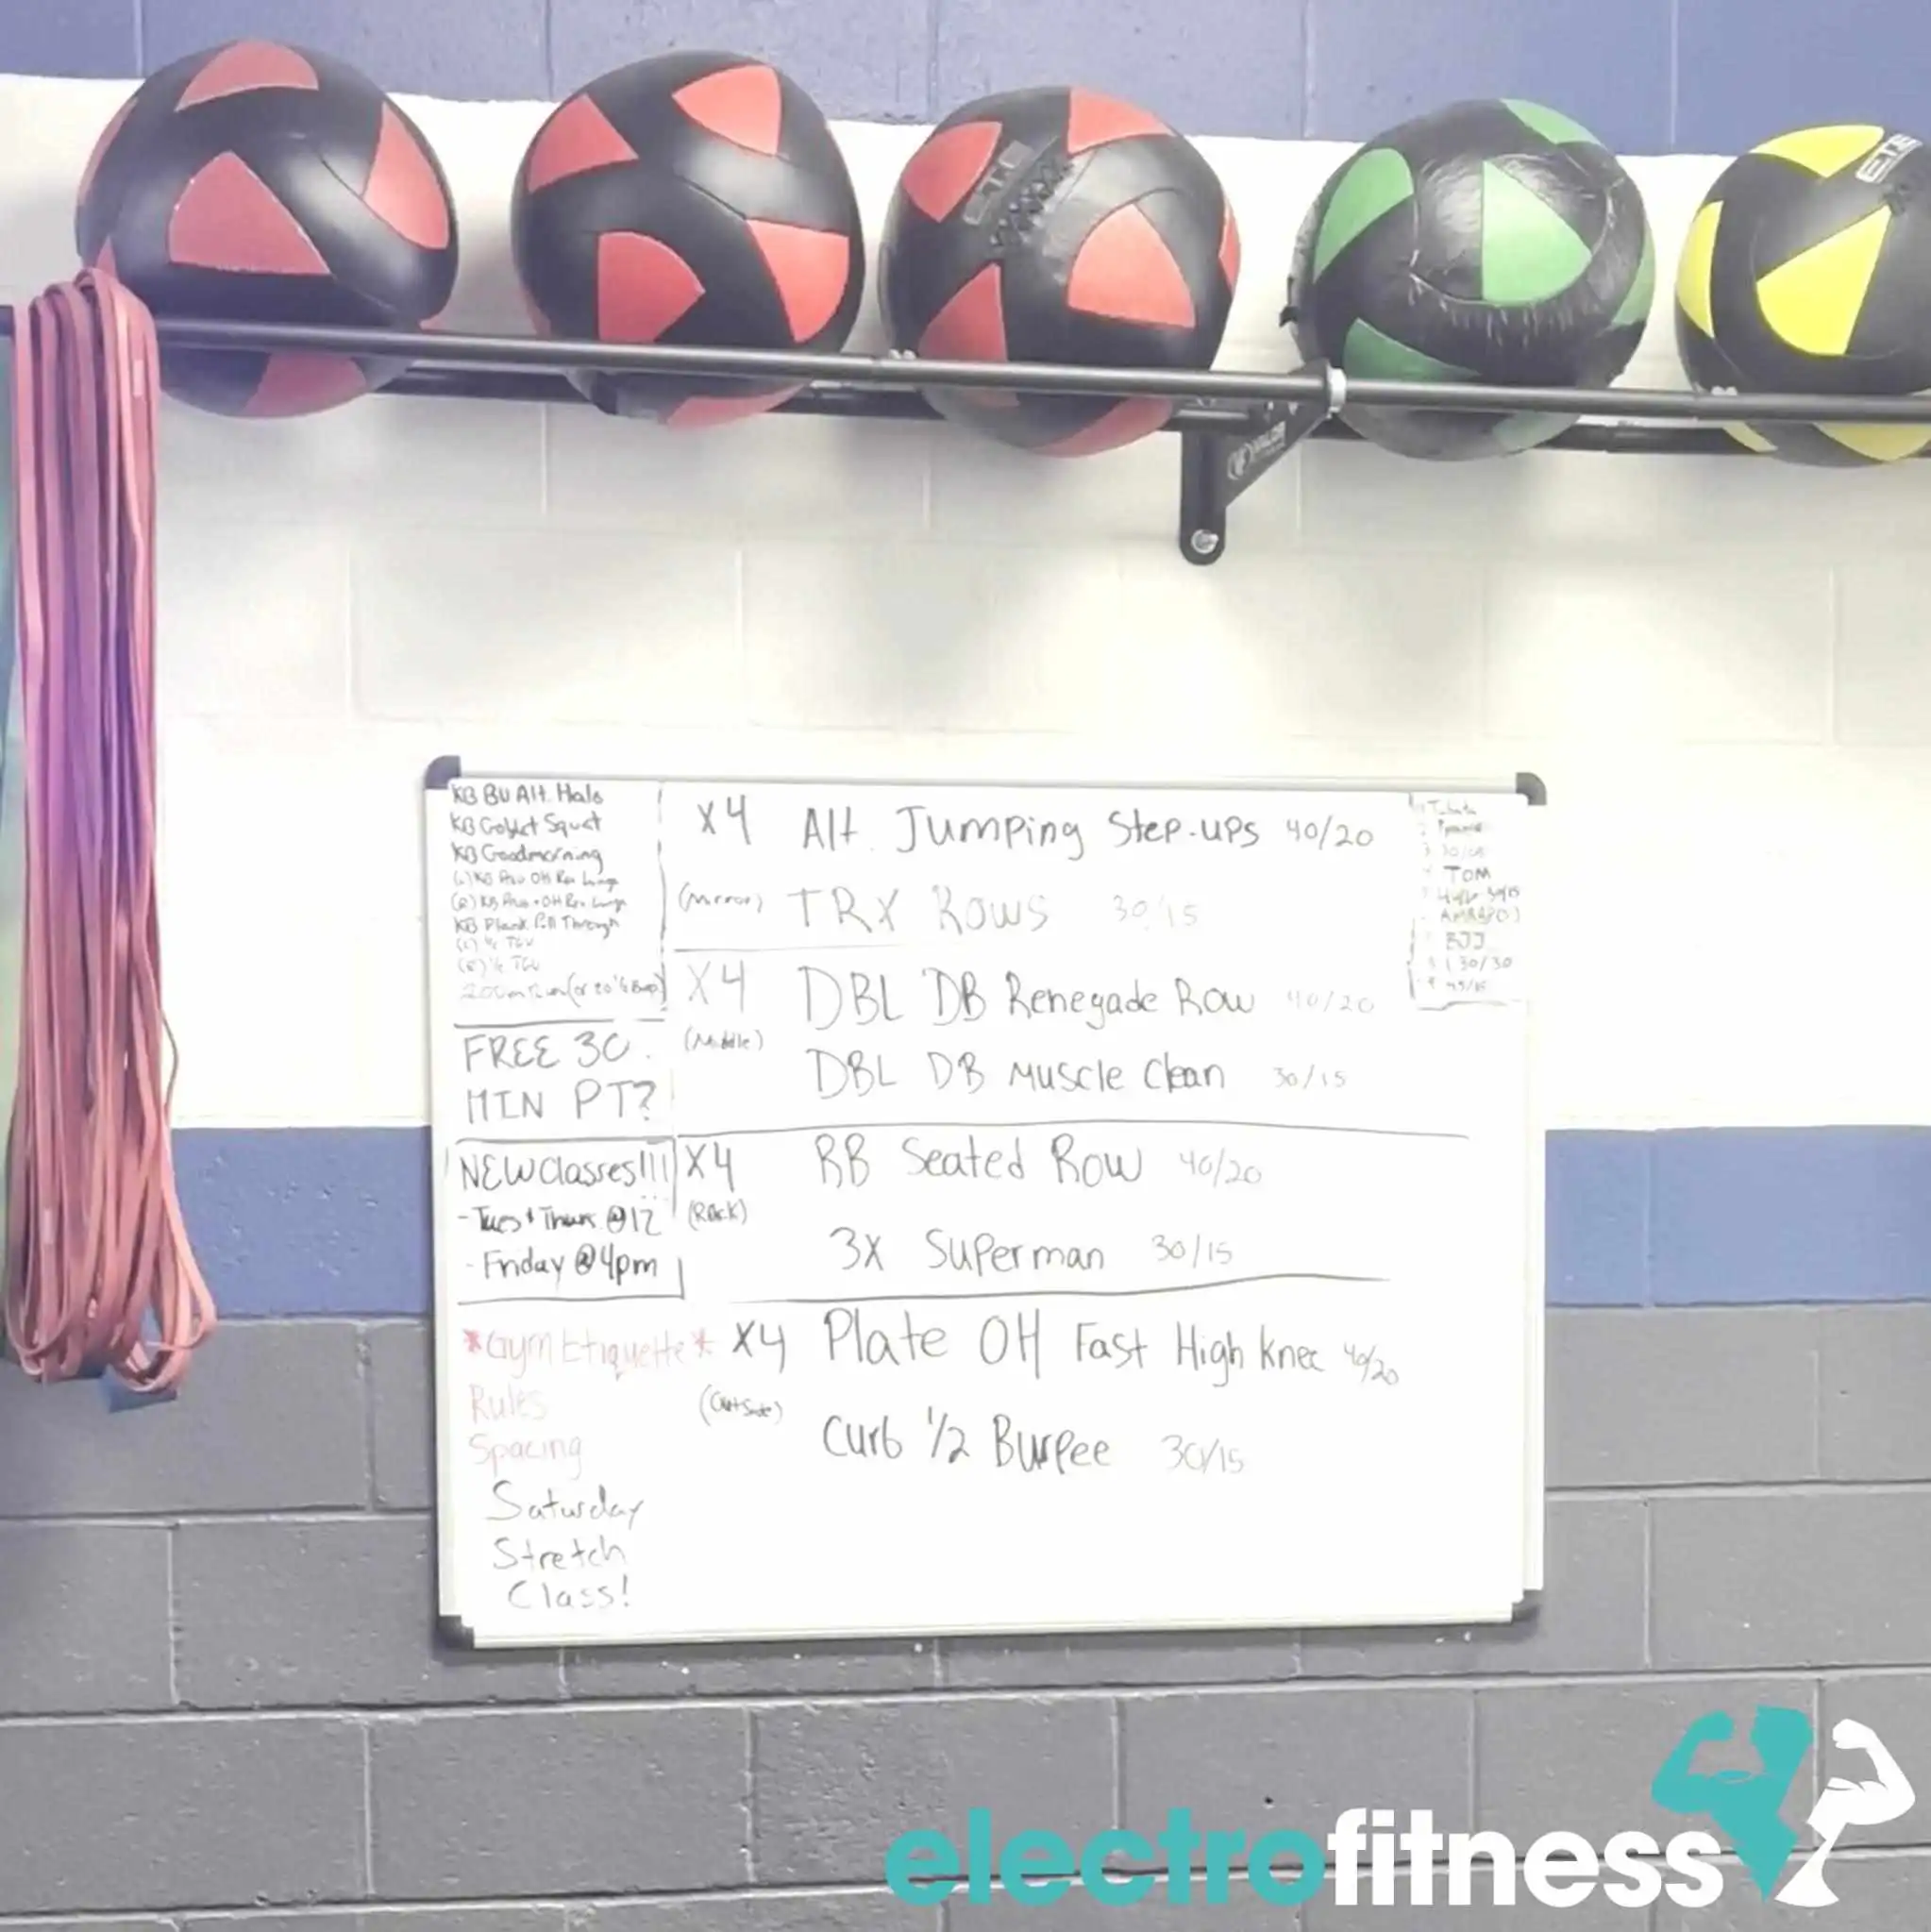 KB BU Alt. Halo
KB Goblet Squat
KB Goodmorning
KB Plank Pull Through
(L) ½ TGU
(R) ½ TGU
FREE 30
MIN PT?
NEW Classes!!!
- Tues + Thurs @12
- Friday @4pm
*Gym Etiquette*
Rules
Spacing
Saturday
Stretch
Class!
X4 Alt. Jumping Step-ups 40/20
(Mirror) TRX Rows 30/15
X4 DBL DB Renegade Row 40/20
(Middle)
DBL DB Muscle Clean 30/15
X4 BB Seated Row 40/20
(Rack)
3X Superman 30/15
X4 Plate OH Fast High Knee 40/20
(Outside)
Curb 1/2 Burpee 30/15
TOM
BJJ
30/30
45/15
VALOR
electrofitness